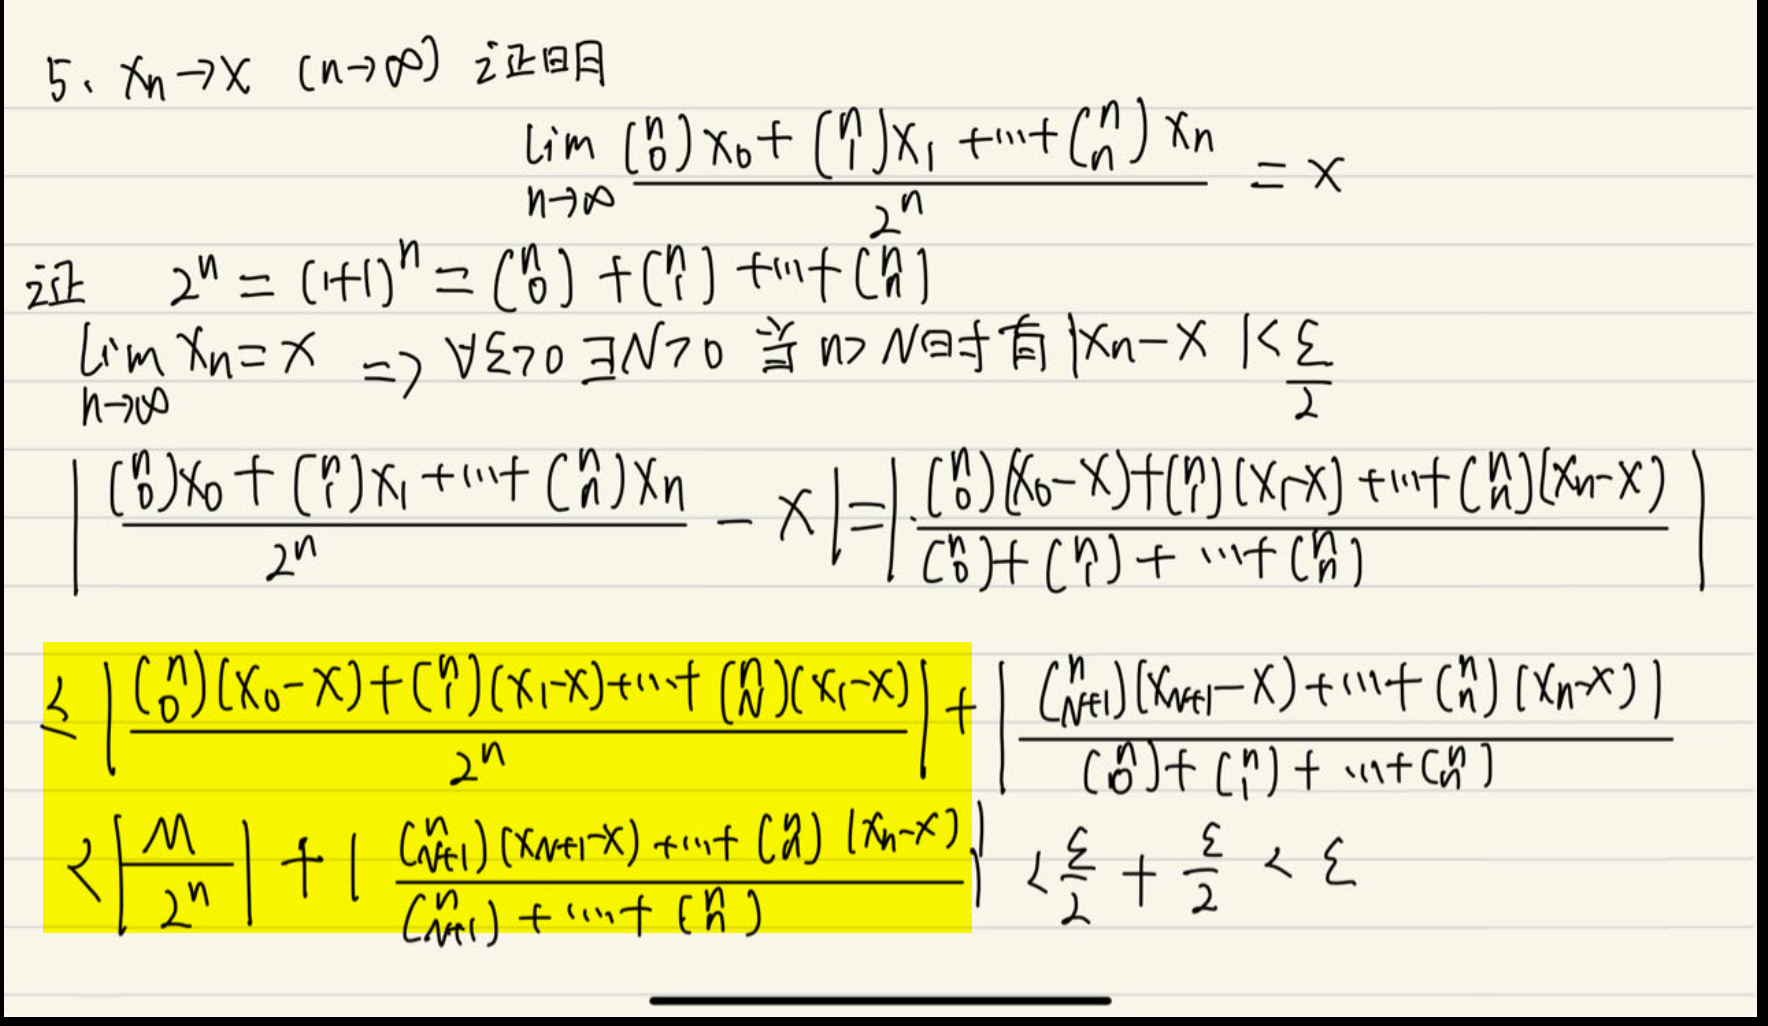 5、xn→x (n→∞) 证明
lim n→∞ [(n 0)x0 + (n 1)x1 + ... + (n n)xn] / 2^n = x
证 2^n = (1+1)^n = (n 0) + (n 1) + ... + (n n)
lim n→∞ xn = x => ∀ε>0 ∃N>0 当 n>N时有 |xn-x|< ε/2
| [(n 0)x0 + (n 1)x1 + ... + (n n)xn] / 2^n - x | = | [(n 0)(x0-x) + (n 1)(x1-x) + ... + (n n)(xn-x)] / [(n 0) + (n 1) + ... + (n n)] |
≤ | [(n 0)(x0-x) + (n 1)(x1-x) + ... + (n N)(x1-x)] / 2^n | + | [(n N+1)(xN+1-x) + ... + (n n)(xn-x)] / [(n 0) + (n 1) + ... + (n n)] |
< | M / 2^n | + | [(n N+1)(xN+1-x) + ... + (n n)(xn-x)] / [(n N+1) + ... + (n n)] | < ε/2 + ε/2 < ε